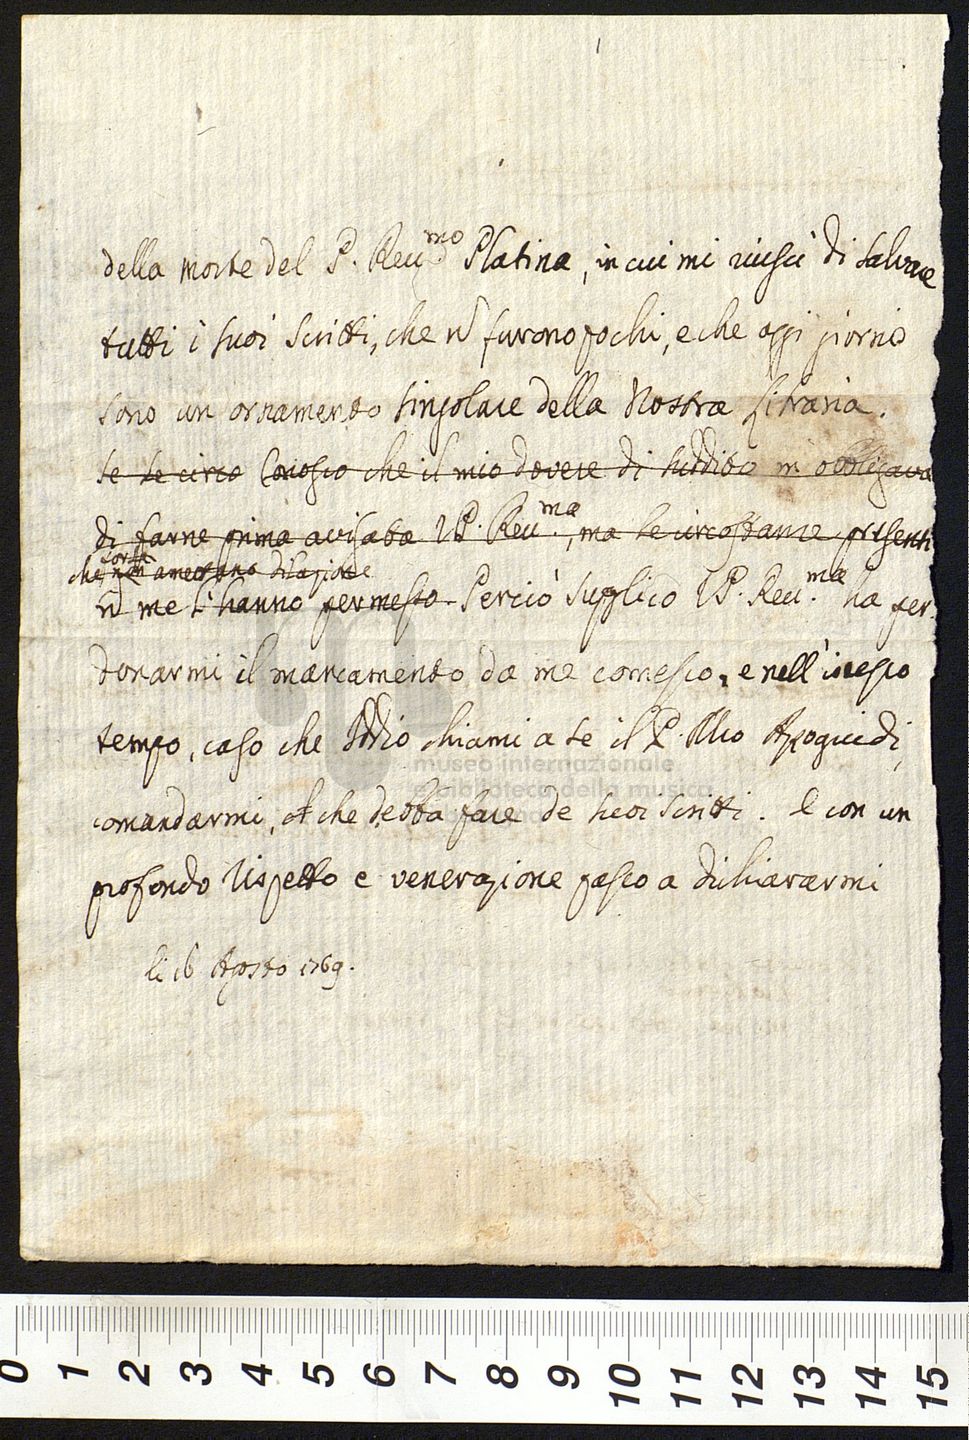 della morte del P. Reu.mo Platina, in cui mi riusci di salvare
tutti i suoi scritti, che ñ furono pochi, e che oggi giorno
sono un ornamento singolare della Nostra Libraria.
se le circo Conosco che il mio dovere di suddito m'obbligava
di farne prima avisata V.P. Reu.ma, ma le circostanze presenti
che non ametevano dilazione
ñ me l'hanno permesso. Perciò supplico V.P. Reu.ma ha per-
donarmi il mancamento da me comesso, e nell'istesso
tempo, caso che Iddio chiami a se il P. Mro Apoguidi,
comandarmi, che debba fare de suoi scritti. E con un
profondo rispetto e venerazione passo a dichiararmi
li 16 Agosto 1769.
museo internazionale
e biblioteca della musica
0 1 2 3 4 5 6 7 8 9 10 11 12 13 14 15